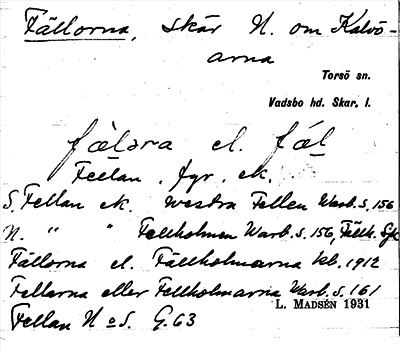 Fällorna, skär N. om Kalvö-
arna
Torsö sn.
Vadsbo hd. Skar. l.
fælora el. fæl
Feelan, fyr, ek.
S. Fellan ek. westra Fellen Warb. s. 156
N. " " Fellholmen Warb. s. 156, Fällh. Sjk
Fällorna el. Fällholmarna kb. 1912
Fellerna eller Fellholmarna Warb. s. 161
L. MADSÉN 1931
Fellan N o S. G. 63